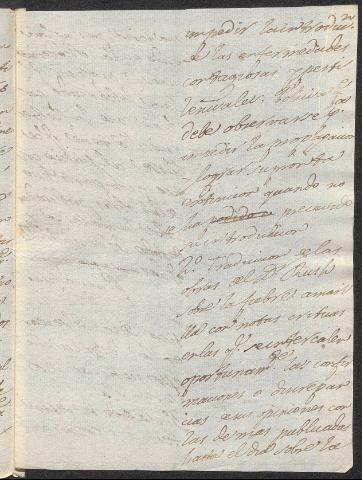 impedir la introduc.ⁿ
de las enfermedades
contagiosas y pesti
lenciales. Policia q.
debe observarse p.ª
impedir la propagacion
y lograr su pronta
extincion quando no
se ha podido precavido
su introduccion.
2.º Traduccion de las
obras del D.r Rush
sobre la fiebre amari
lla con notas criticas
en las q.e se intercalen
oportunam.te las confir
maciones o discrepan
cias a sus opiniones con
las demas publicadas
hasta el dia sobre la